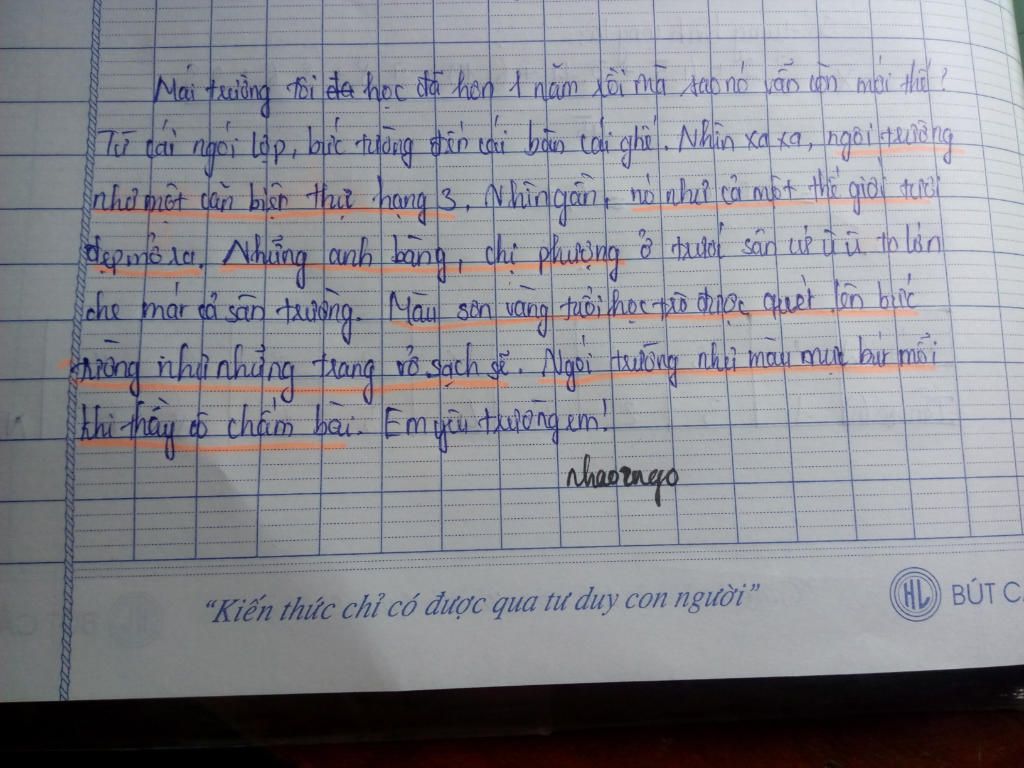 Mái trường tôi đã học đã hơn 1 năm rồi mà sao nó vẫn còn mới thế?
Từ cái ngói lợp, bức tường đến cái bàn cái ghế. Nhìn xa xa, ngôi trường
như một căn biệt thự hạng 3, Nhìn gần, nó như cả một thế giới tươi
đẹp, mở ra. Những anh bàng, chị phượng ở dưới sân cứ ù ù to lớn
che mát cả sân trường. Màu sơn vàng tuổi học trò được quét lên bức
tường như những trang vở sạch sẽ. Ngôi trường như màu mực bút mỗi
khi thầy cô chấm bài. Em yêu trường em!
"Kiến thức chỉ có được qua tư duy con người"
HL BÚT